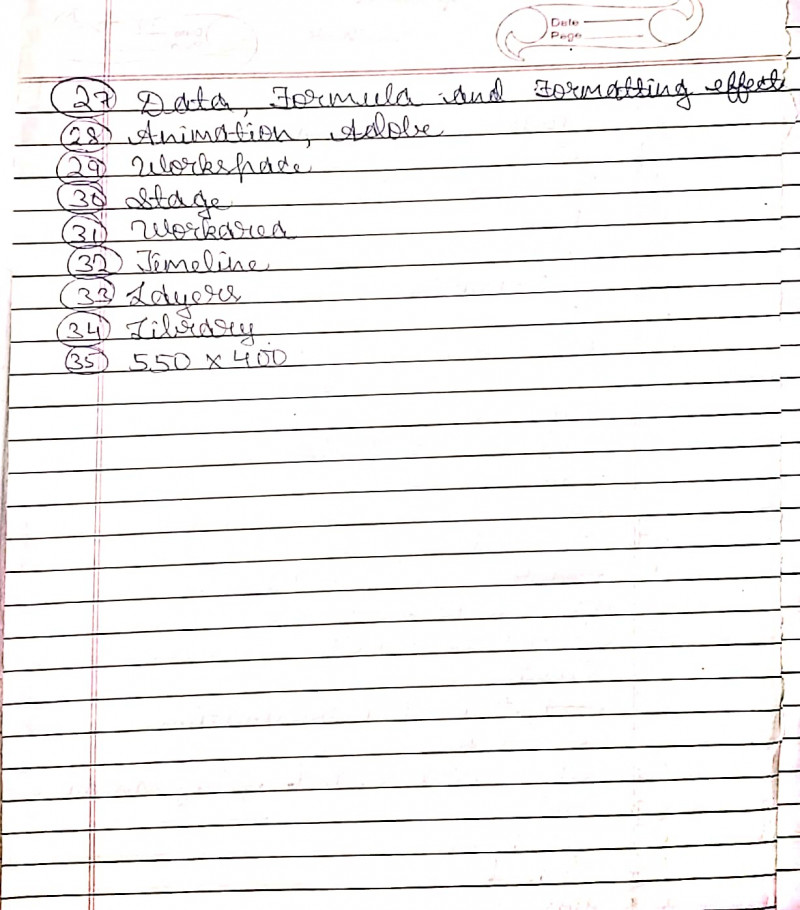 Date
Page
27 Data, Formula and Formatting effect
28 Animation, Adobe
29 Workspace
30 Stage
31 Workarea
32 Timeline
33 Layers
34 Library
35 550 × 400